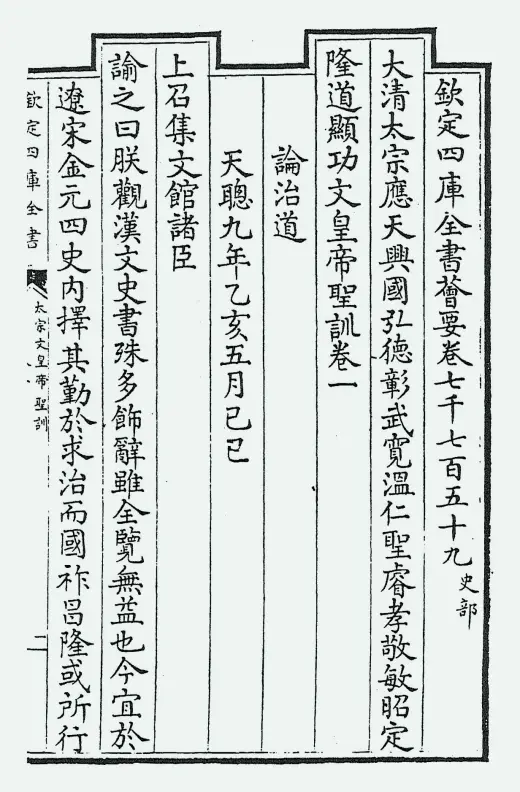 欽定四庫全書薈要卷七千七百五十九 史部
大清太宗應天興國弘德彰武寬溫仁聖睿孝敬敏昭定
隆道顯功文皇帝聖訓卷一
論治道
天聰九年乙亥五月己巳
上召集文館諸臣
諭之曰朕觀漢文史書殊多飾辭雖全覽無益也今宜於
遼宋金元四史內擇其勤於求治而國祚昌隆或所行
欽定四庫全書
太宗文皇帝聖訓
二